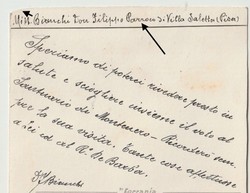 Mr Bianchi Don Filippo Parroco di Villa Saletta (Pisa)
Speriamo di poterci rivedere presto in
salute e sciogliere insieme il voto al
Santuario di Montenero - Ricordero sem
pre la sua visita. Tante cose affettuose
a Lei ed al R. De Barba.
F. Bianchi